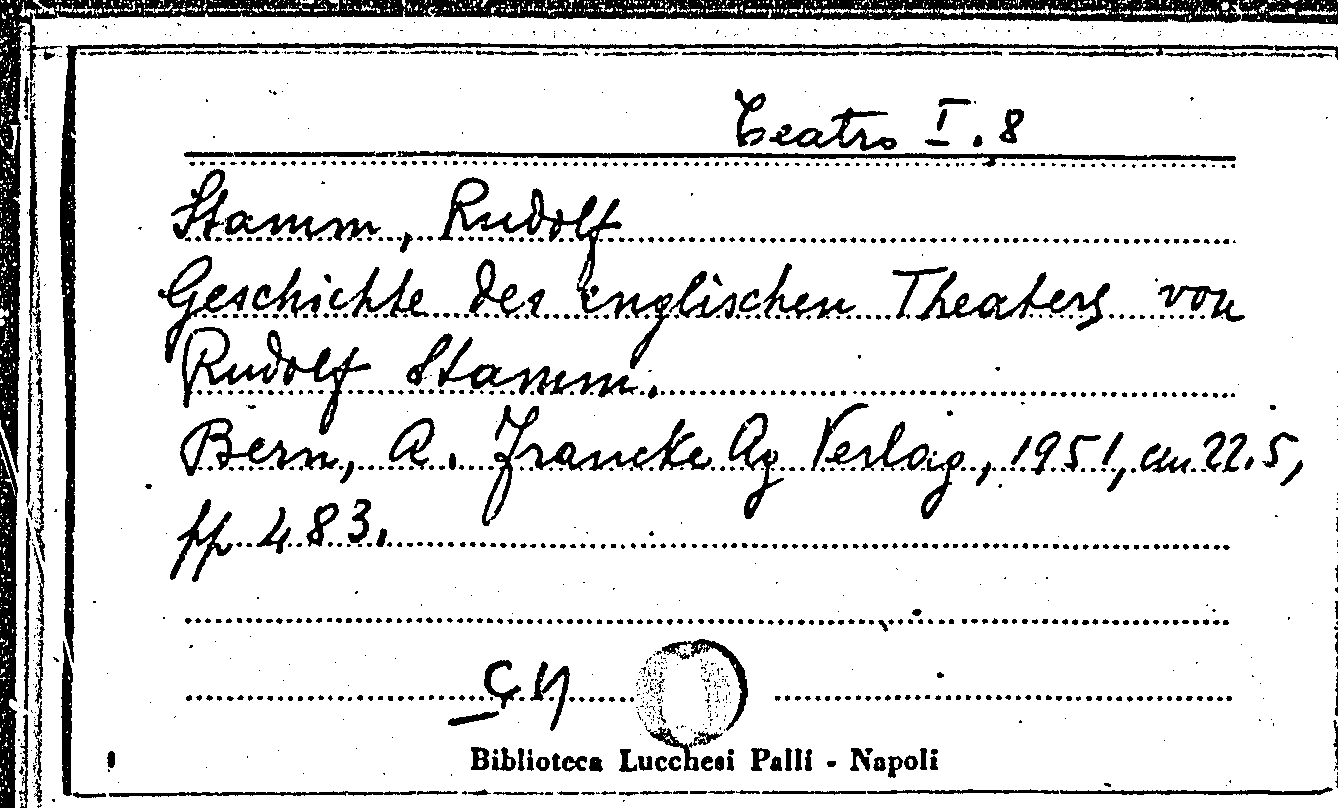 Teatro I. 8
Stamm, Rudolf
Geschichte des englischen Theaters von
Rudolf Stamm.
Bern, A. Francke Ag Verlag, 1951, cm 22.5,
pp 483.
Biblioteca Lucchesi Palli - Napoli